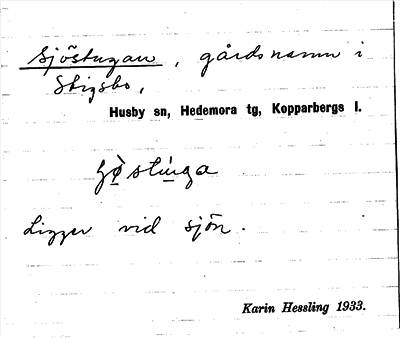 Sjöstugan, gårdsnamn i
Stigsbo,
Husby sn, Hedemora tg, Kopparbergs l.
Ligger vid sjön.
Karin Hessling 1933.